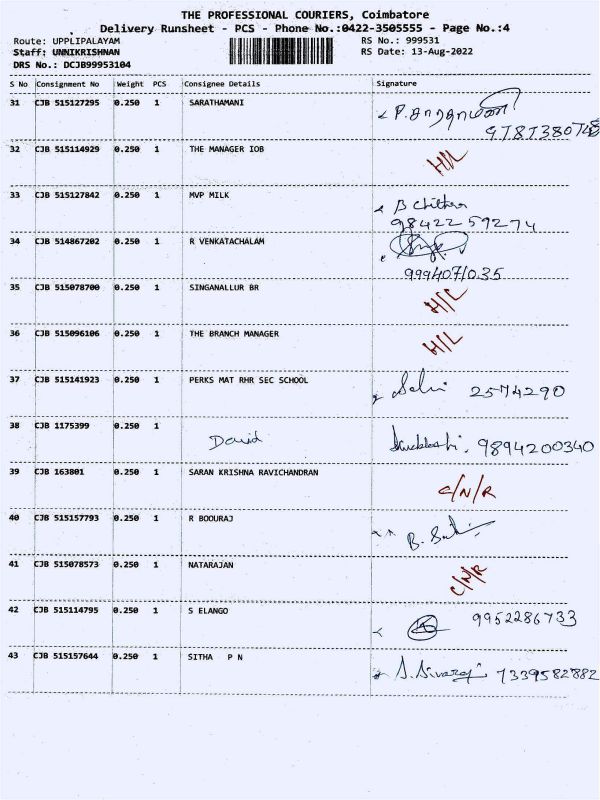 THE PROFESSIONAL COURIERS, Coimbatore
Delivery Runsheet - PCS - Phone No.:0422-3505555 - Page No.:4
Route: UPPLIPALAYAM RS No.: 999531
Staff: UNNIKRISHNAN RS Date: 13-Aug-2022
DRS No.: DCJB99953104
S No Consignment No Weight PCS Consignee Details Signature
31 CJB 515127295 0.250 1 SARATHAMANI P.சாரதாமணி
32 CJB 515114929 0.250 1 THE MANAGER IOB H/L
33 CJB 515127842 0.250 1 MVP MILK B Chithra
9842259274
34 CJB 514867202 0.250 1 R VENKATACHALAM
9994071035
35 CJB 515078700 0.250 1 SINGANALLUR BR H/L
36 CJB 515096106 0.250 1 THE BRANCH MANAGER H/L
37 CJB 515141923 0.250 1 PERKS MAT RHR SEC SCHOOL 2574290
38 CJB 1175399 0.250 1 David 9894200340
39 CJB 163801 0.250 1 SARAN KRISHNA RAVICHANDRAN C/N/R
40 CJB 515157793 0.250 1 R BOOURAJ
41 CJB 515078573 0.250 1 NATARAJAN C/N/R
42 CJB 515114795 0.250 1 S ELANGO 9952286733
43 CJB 515157644 0.250 1 SITHA P N S.Sivaraj 7339582882